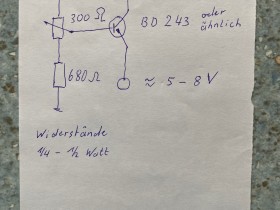 300 Ω
BD 243 oder
ähnlich
680 Ω
≈ 5-8 V
Widerstände
1/4 - 1/2 Watt